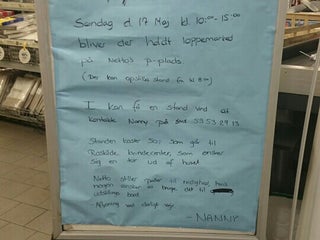 Søndag d. 17 Maj kl. 10:00-15:00
bliver der holdt loppemarked
på Netto's p-plads.
(Der kan opstilles stand fra kl 8:00)
I kan få en stand ved at
kontakte Nanny på
Standen koster 50,- som går til
Roskilde hundecenter, som ønsker
sig en tør ud af huset
Netto stiller til rådighed, hvis
nogen ønsker at bruge, det til
udstillings bord
- Aflysning ved dårligt vejr
- NANNY